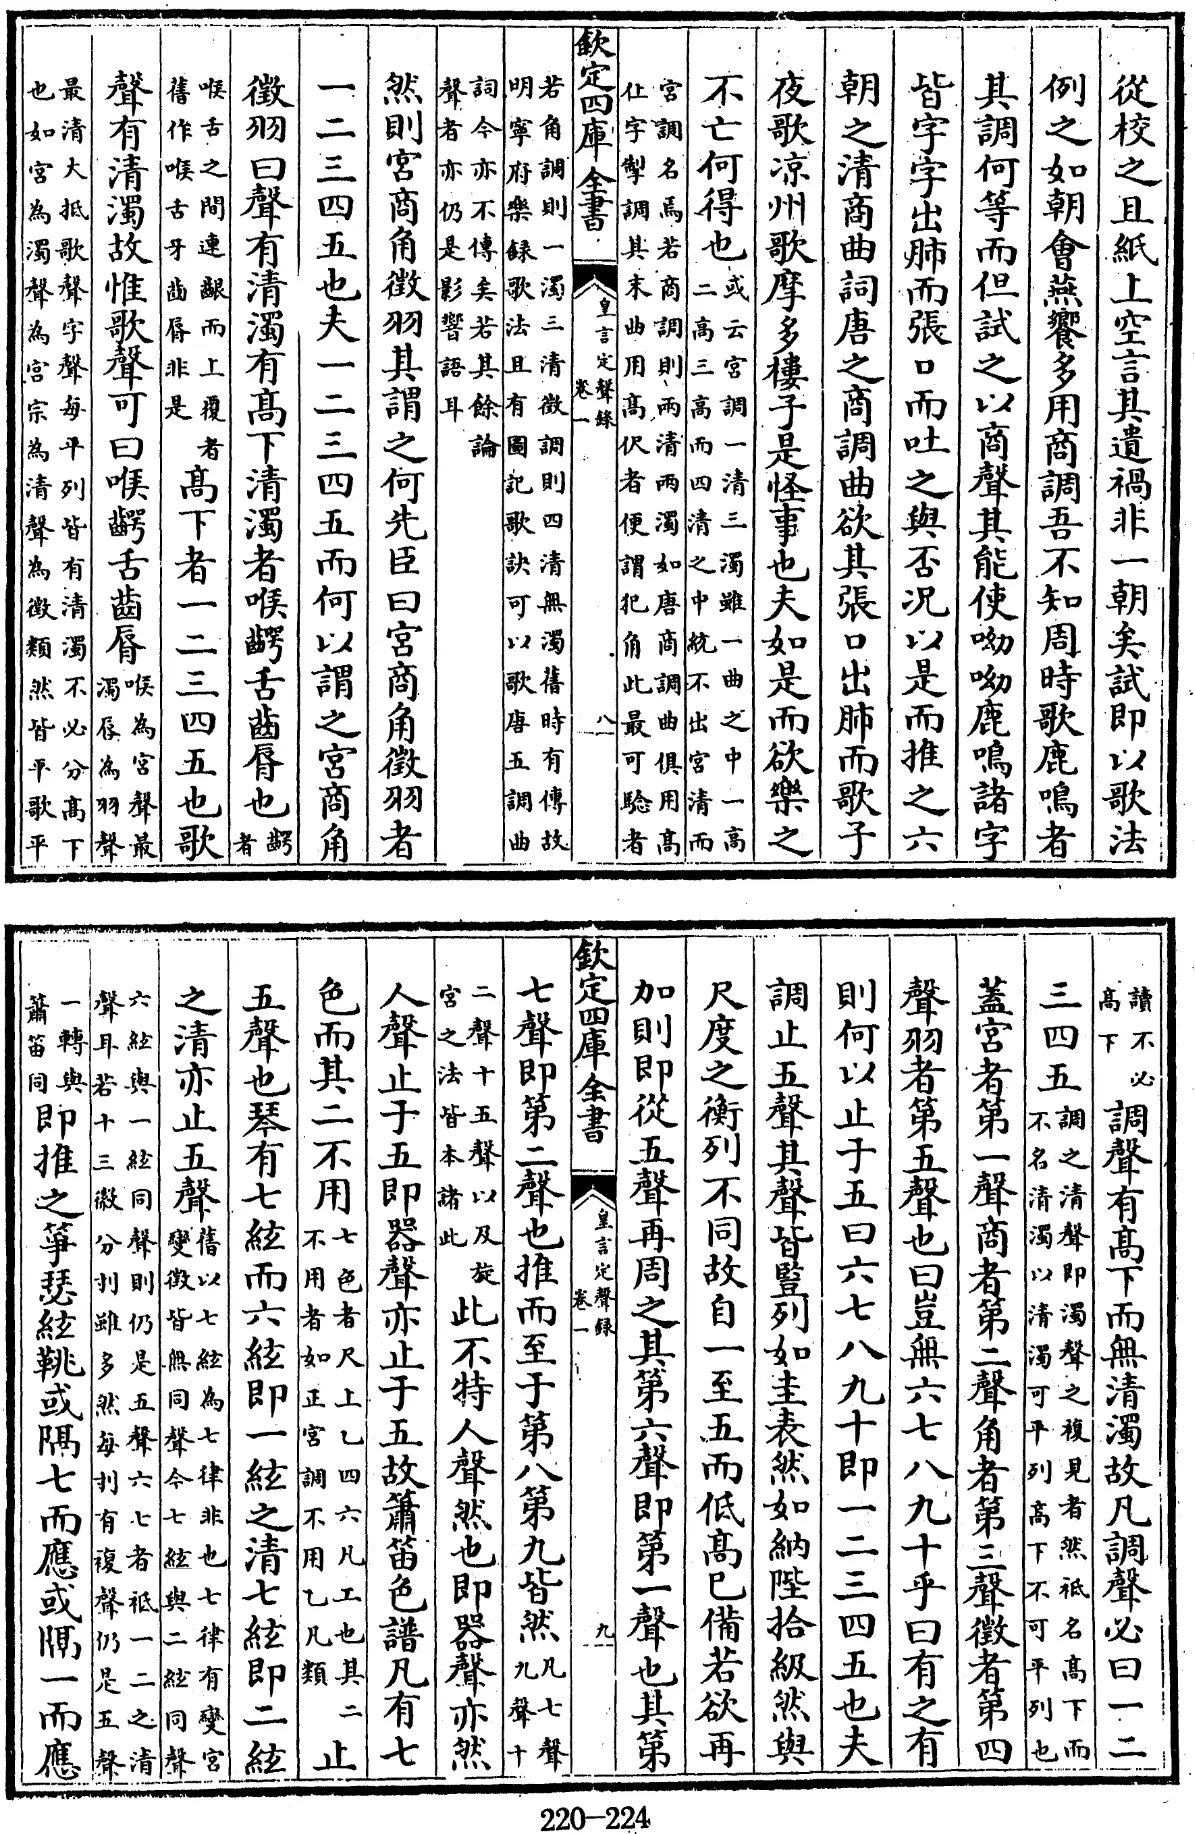 從校之且紙上空言其遺禍非一朝矣試即以歌法
例之如朝會燕饗多用商調吾不知周時歌鹿鳴者
其調何等而但試之以商聲其能使呦呦鹿鳴諸字
皆字字出肺而張口而吐之與否况以是而推之六
朝之清商曲詞唐之商調曲欲其張口出肺而歌子
夜歌凉州歌摩多樓子是怪事也夫如是而欲樂之
不亡何得也
或云宫調一清三濁雖一曲之中一高
二高三高而四清之中統不出宫清而
宫調名焉若商調則兩清兩濁如唐商調曲俱用高
仕字掣調其末曲用高伬者便謂犯角此最可騐者
欽定四庫全書
皇言定聲錄
卷一
八
若角調則一濁三清徵調則四清無濁舊時有傳故
明寧府樂録歌法且有圖記歌訣可以歌唐五調曲
詞今亦不傳矣若其餘論
聲者亦仍是影響語耳
然則宫商角徵羽其謂之何先臣曰宫商角徵羽者
一二三四五也夫一二三四五而何以謂之宫商角
徵羽曰聲有清濁有高下清濁者喉齶舌齒脣也
齶
者
喉舌之間連齦而上覆者
舊作喉舌牙齒脣非是
高下者一二三四五也歌
聲有清濁故惟歌聲可曰喉齶舌齒脣
喉為宫聲最
濁脣為羽聲
最清大抵歌聲字聲每平列皆有清濁不必分高下
也如宫為濁聲為宫宗為清聲為徵類然皆平歌平
讀不必
高下
調聲有高下而無清濁故凡調聲必曰一二
三四五
調之清聲即濁聲之複見者然祗名高下而
不名清濁以清濁可平列高下不可平列也
蓋宫者第一聲商者第二聲角者第三聲徵者第四
聲羽者第五聲也曰豈無六七八九十乎曰有之有
則何以止于五曰六七八九十即一二三四五也夫
調止五聲其聲皆豎列如圭表然如納陛拾級然與
尺度之衡列不同故自一至五而低高已備若欲再
加則即從五聲再周之其第六聲即第一聲也其第
欽定四庫全書
皇言定聲錄
卷一
九
七聲即第二聲也推而至于第八第九皆然
凡七聲
九聲十
二聲十五聲以及旋
宫之法皆本諸此
此不特人聲然也即器聲亦然
人聲止于五即器聲亦止于五故簫笛色譜凡有七
色而其二不用
七色者尺上乙四六凡工也其二
不用者如正宫調不用乙凡類
止
五聲也琴有七絃而六絃即一絃之清七絃即二絃
之清亦止五聲
舊以七絃為七律非也七律有變宫
變徵皆無同聲今七絃與二絃同聲
六絃與一絃同聲則仍是五聲六七者祗一二之清
聲耳若十三徽分刌雖多然每刌有複聲仍是五聲
一轉與
簫笛同
即推之箏瑟絃鞉或隔七而應或隔一而應
220-224